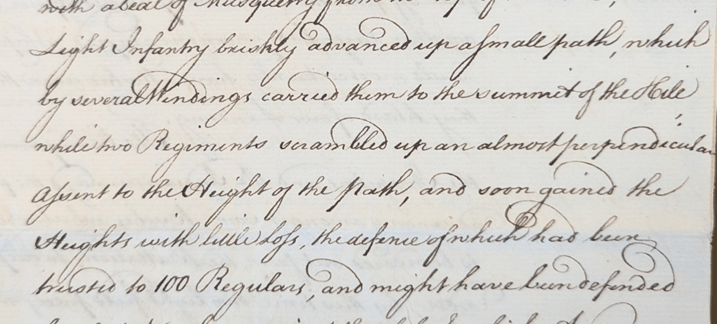 with a beat of Musquetry from the top of
Light Infantry briskly advanced up a small path, which
by several Windings carried them to the summit of the Hill,
while two Regiments scrambled up an almost perpendicular
assent to the Height of the path, and soon gained the
Heights with little loss, the defence of which had been
trusted to 100 Regulars, and might have been defended